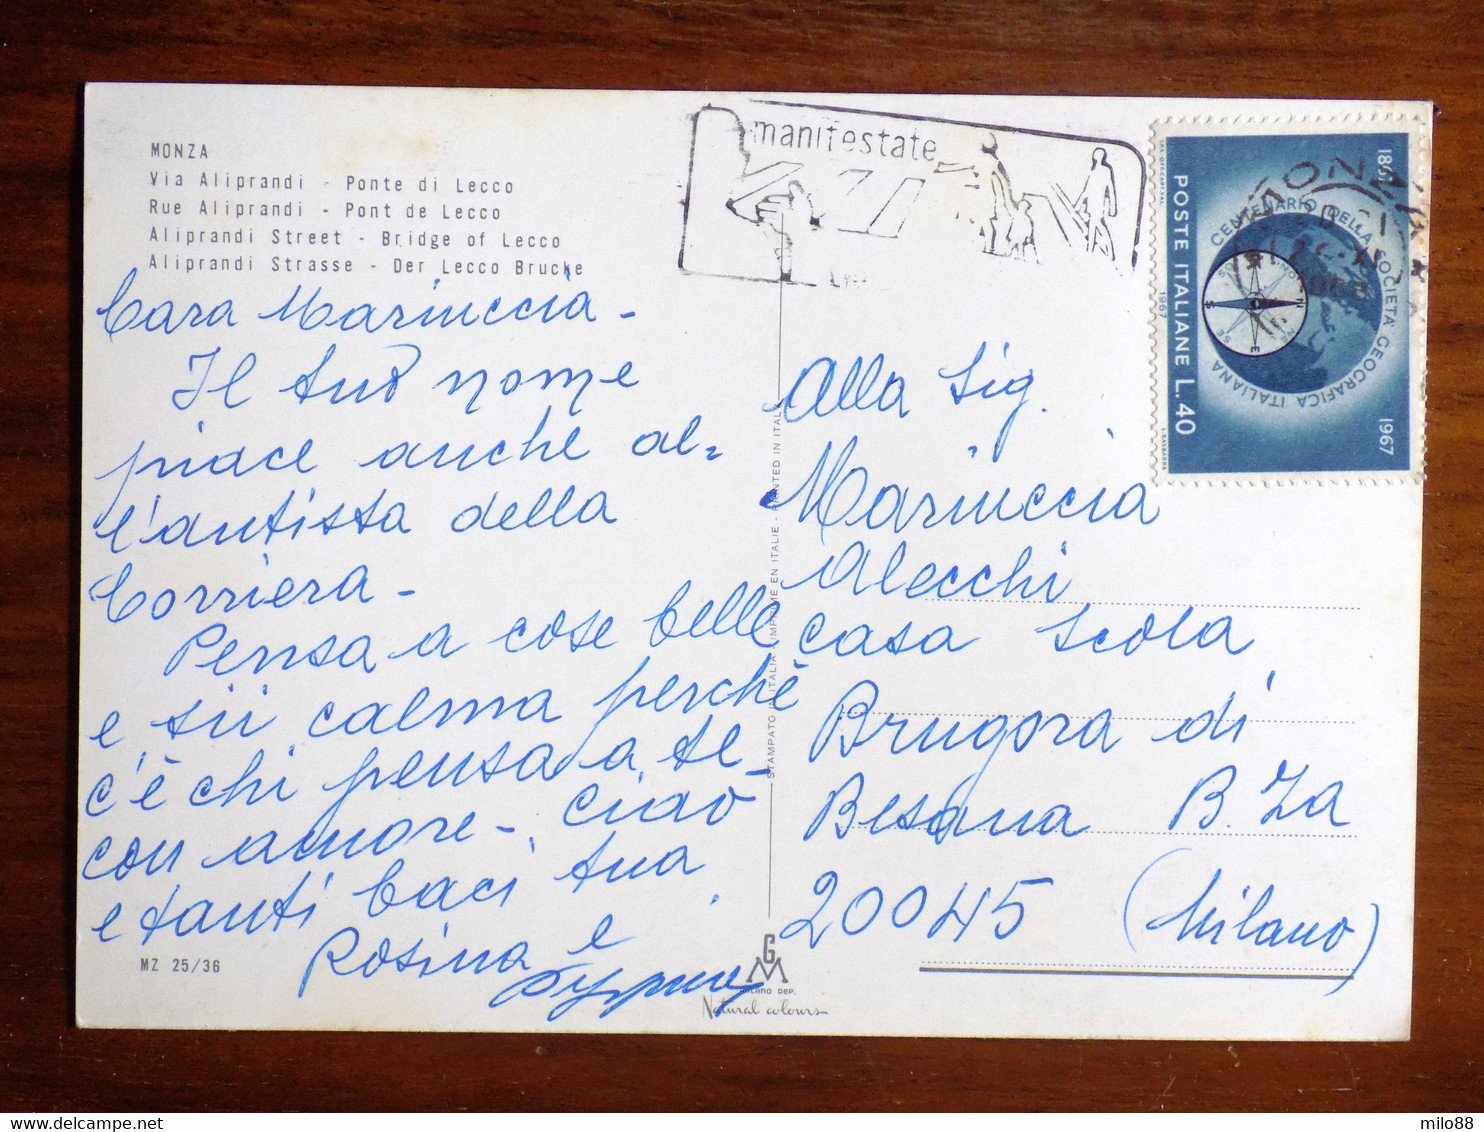 MONZA
Via Aliprandi - Ponte di Lecco
Rue Aliprandi - Pont de Lecco
Aliprandi Street - Bridge of Lecco
Aliprandi Strasse - Der Lecco Brucke
Cara Mariuccia -
Il tuo nome
piace anche al=
l'autista della
Corriera -
Pensa a cose belle
e sii calma perchè
c'è chi pensa a te
con amore - Ciao
e tanti baci tua
Rosina e
MZ 25/36
STAMPATO IN ITALIA - IMPRIMÉ EN ITALIE - PRINTED IN ITALY
GM
MILANO DEP.
Natural colours
manifestate
MONZA
1861
1967
CENTENARIO DELLA SOCIETÀ GEOGRAFICA ITALIANA
POSTE ITALIANE L. 40
1967
Alla Sig.
Mariuccia
Alecchi
casa Scola
Brugora di
Besana B.za
20045 (Milano)
milo88